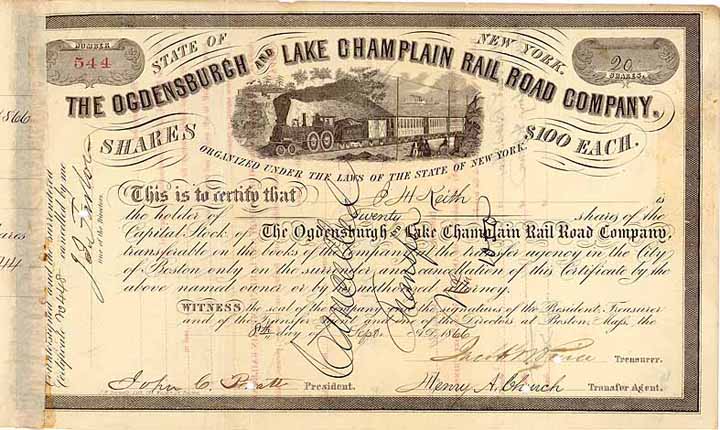 NUMBER
544
STATE OF
NEW YORK.
20
SHARES.
THE OGDENSBURGH AND LAKE CHAMPLAIN RAIL ROAD COMPANY.
SHARES
$100 EACH.
ORGANIZED UNDER THE LAWS OF THE STATE OF NEW YORK.
This is to certify that C H Keith is
the holder of Twenty shares of the
Capital Stock of The Ogdensburgh and Lake Champlain Rail Road Company,
transferable on the books of the Company at the transfer agency in the City
of Boston only on the surrender and cancellation of this Certificate by the
above named owner or by his authorized attorney.
WITNESS the seal of the Company and the signatures of the President, Treasurer
and of the Transfer Agent and one of the Directors at Boston, Mass. the
8th day of Sept AD 1866
Treasurer.
John C. Pratt President.
Henry A. Church Transfer Agent.
Cancelled
Transfer
No
Countersigned and the surrendered
Certificate No 448 cancelled by me
one of the Directors
1866
shares